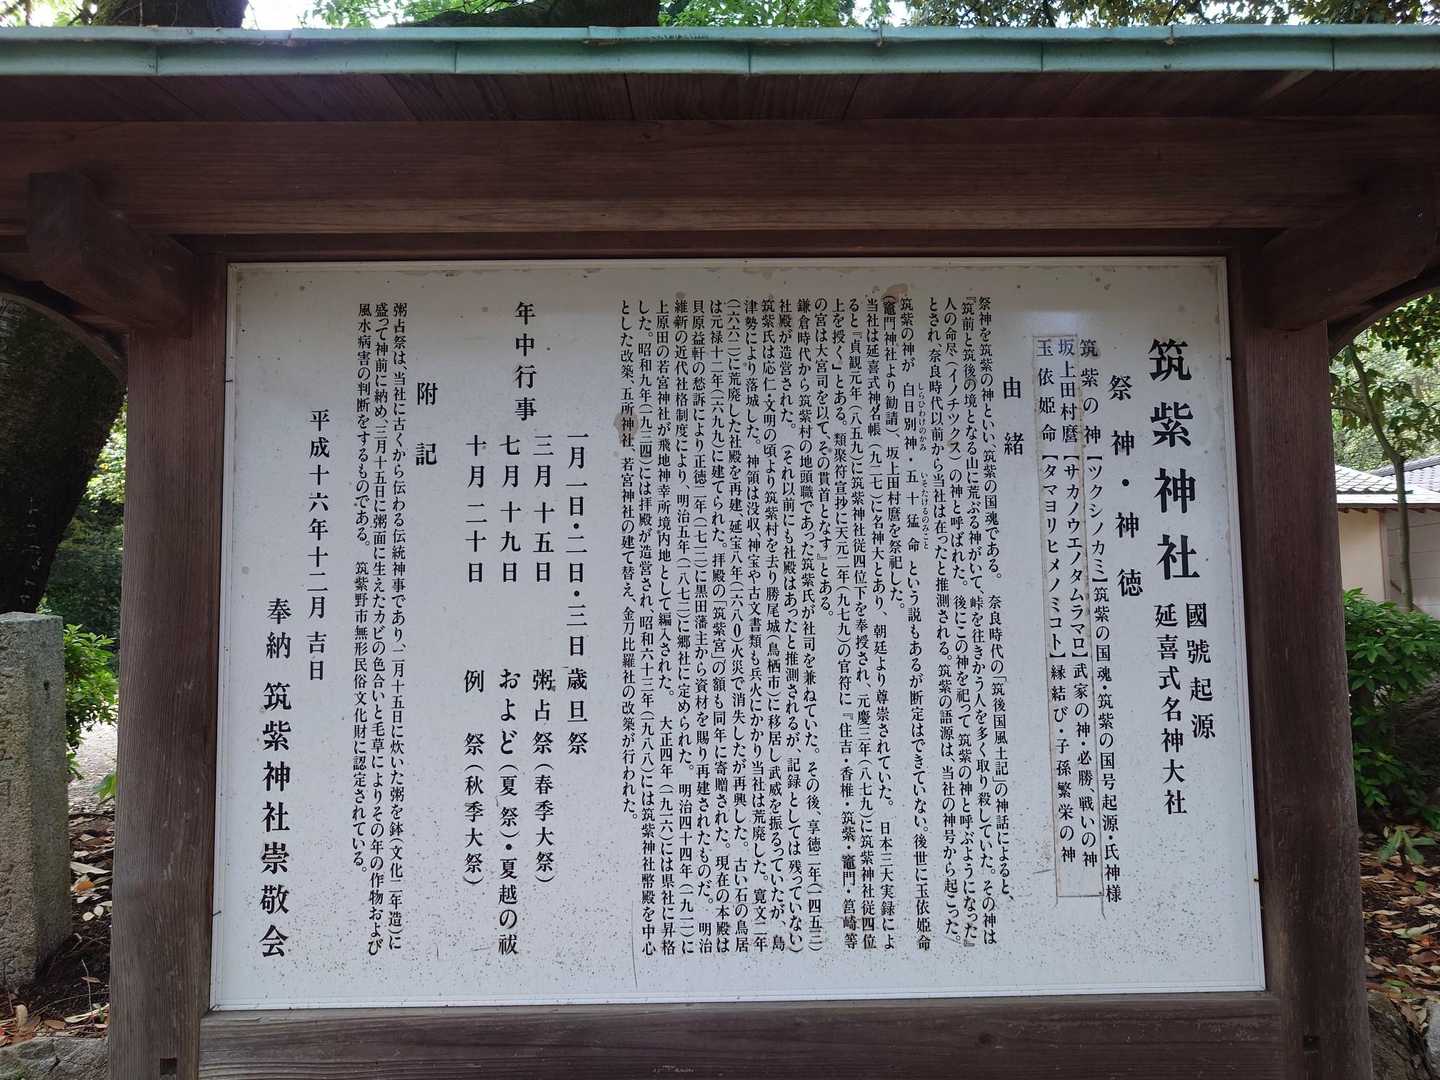 筑紫神社
國號起源
延喜式名神大社
祭神・神徳
筑紫の神【ツクシノカミ】筑紫の国魂・筑紫の国号起源・氏神様
坂上田村麿【サカノウエノタムラマロ】武家の神・必勝、戦いの神
玉依姫命【タマヨリヒメノミコト】縁結び・子孫繁栄の神
由緒
祭神を筑紫の神といい、筑紫の国魂である。奈良時代の「筑後国風土記」の神話によると、
『筑前と筑後の境となる山に荒ぶる神がいて、峠を往きかう人を多く取り殺していた。その神は
人の命尽（イノチツクス）の神と呼ばれた。後にこの神を祀って筑紫の神と呼ぶようになった』
とされ、奈良時代以前から当社は在ったと推測される。筑紫の語源は、当社の神号から起こった。
筑紫の神が 白日別神・五十猛命 という説もあるが断定はできていない。後世に玉依姫命
しらひわけのかみ
いそたけるのみこと
（竈門神社より勧請）、坂上田村麿を祭祀した。
当社は延喜式神名帳（九二七）に名神大とあり、朝廷より尊崇されていた。日本三大実録によ
ると『貞観元年（八五九）に筑紫神社従四位下を奉授され、元慶三年（八七九）に筑紫神社従四位
上を授く』とある。類聚符宣抄に天元二年（九七九）の官符に『住吉・香椎・筑紫・竈門・筥崎等
の宮は大宮司を以て、その貫首となす』とある。
鎌倉時代から筑紫村の地頭職であった筑紫氏が社司を兼ねていた。その後、享徳二年（一四五三）
社殿が造営された。（それ以前にも社殿はあったと推測されるが、記録としては残っていない）
筑紫氏は応仁・文明の頃より筑紫村を去り勝尾城（鳥栖市）に移居し武威を振るっていたが、島
津勢により落城した。神領は没収、神宝や古文書類も兵火にかかり当社は荒廃した。寛文二年
（一六六二）に荒廃した社殿を再建、延宝八年（一六八〇）火災で消失したが再興した。古い石の鳥居
は元禄十二年（一六九九）に建てられた。拝殿の「筑紫宮」の額も同年に寄贈された。現在の本殿は
貝原益軒の愁訴により正徳二年（一七一二）に黒田藩主から資材を賜り再建されたものだ。明治
維新の近代社格制度により、明治五年（一八七二）に郷社に定められた。明治四十四年（一九一一）に
上原田の若宮神社が飛地神幸所境内地として編入された。大正四年（一九一六）には県社に昇格
した。昭和九年（一九三四）には拝殿が造営され、昭和六十三年（一九八八）には筑紫神社幣殿を中心
とした改築、五所神社、若宮神社の建て替え、金刀比羅社の改築が行われた。
年中行事
一月一日・二日・三日 歳旦祭
三月十五日 粥占祭（春季大祭）
七月十九日 およど（夏祭）・夏越の祓
十月二十日 例祭（秋季大祭）
附記
粥占祭は、当社に古くから伝わる伝統神事であり、二月十五日に炊いた粥を鉢（文化二年造）に
盛って神前に納め、三月十五日に粥面に生えたカビの色合いと毛草によりその年の作物および
風水病害の判断をするものである。筑紫野市無形民俗文化財に認定されている。
平成十六年十二月吉日
奉納 筑紫神社崇敬会